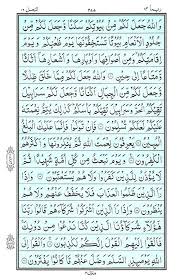 ربما ١٤ ٣٨٨ النحل ١٦
وَاللّٰهُ جَعَلَ لَكُمْ مِّنْۢ بُيُوْتِكُمْ سَكَنًا وَّجَعَلَ لَكُمْ مِّنْ
جُلُوْدِ الْاَنْعَامِ بُيُوْتًا تَسْتَخِفُّوْنَهَا يَوْمَ ظَعْنِكُمْ وَيَوْمَ
اِقَامَتِكُمْ وَمِنْ اَصْوَافِهَا وَاَوْبَارِهَا وَاَشْعَارِهَاۤ اَثَاثًا
وَّمَتَاعًا اِلٰى حِيْنٍ وَاللّٰهُ جَعَلَ لَكُمْ مِّمَّا خَلَقَ ظِلٰلًا
وَّجَعَلَ لَكُمْ مِّنَ الْجِبَالِ اَكْنَانًا وَّجَعَلَ لَكُمْ سَرَابِيْلَ
تَقِيْكُمُ الْحَرَّ وَسَرَابِيْلَ تَقِيْكُمْ بَاْسَكُمْ كَذٰلِكَ يُتِمُّ
نِعْمَتَهٗ عَلَيْكُمْ لَعَلَّكُمْ تُسْلِمُوْنَ فَاِنْ تَوَلَّوْا فَاِنَّمَا عَلَيْكَ
الْبَلٰغُ الْمُبِيْنُ يَعْرِفُوْنَ نِعْمَتَ اللّٰهِ ثُمَّ يُنْكِرُوْنَهَا وَاَكْثَرُهُمُ
الْكٰفِرُوْنَ وَيَوْمَ نَبْعَثُ مِنْ كُلِّ اُمَّةٍ شَهِيْدًا ثُمَّ
لَا يُؤْذَنُ لِلَّذِيْنَ كَفَرُوْا وَلَا هُمْ يُسْتَعْتَبُوْنَ وَاِذَا رَاَ الَّذِيْنَ
ظَلَمُوا الْعَذَابَ فَلَا يُخَفَّفُ عَنْهُمْ وَلَا هُمْ
يُنْظَرُوْنَ وَاِذَا رَاَ الَّذِيْنَ اَشْرَكُوْا شُرَكَآءَهُمْ قَالُوْا
رَبَّنَا هٰۤؤُلَآءِ شُرَكَآؤُنَا الَّذِيْنَ كُنَّا نَدْعُوْا مِنْ
دُوْنِكَ فَاَلْقَوْا اِلَيْهِمُ الْقَوْلَ اِنَّكُمْ لَكٰذِبُوْنَ وَاَلْقَوْا اِلَى اللّٰهِ
يَوْمَئِذِ ِۨالسَّلَمَ وَضَلَّ عَنْهُمْ مَّا كَانُوْا يَفْتَرُوْنَ